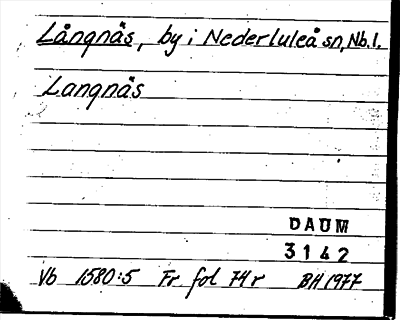 Långnäs, by i Nederluleå sn, Nb. l.
Langnäs
DAUM
3142
Vb 1580:5 Fr fol 74 r BH 1977